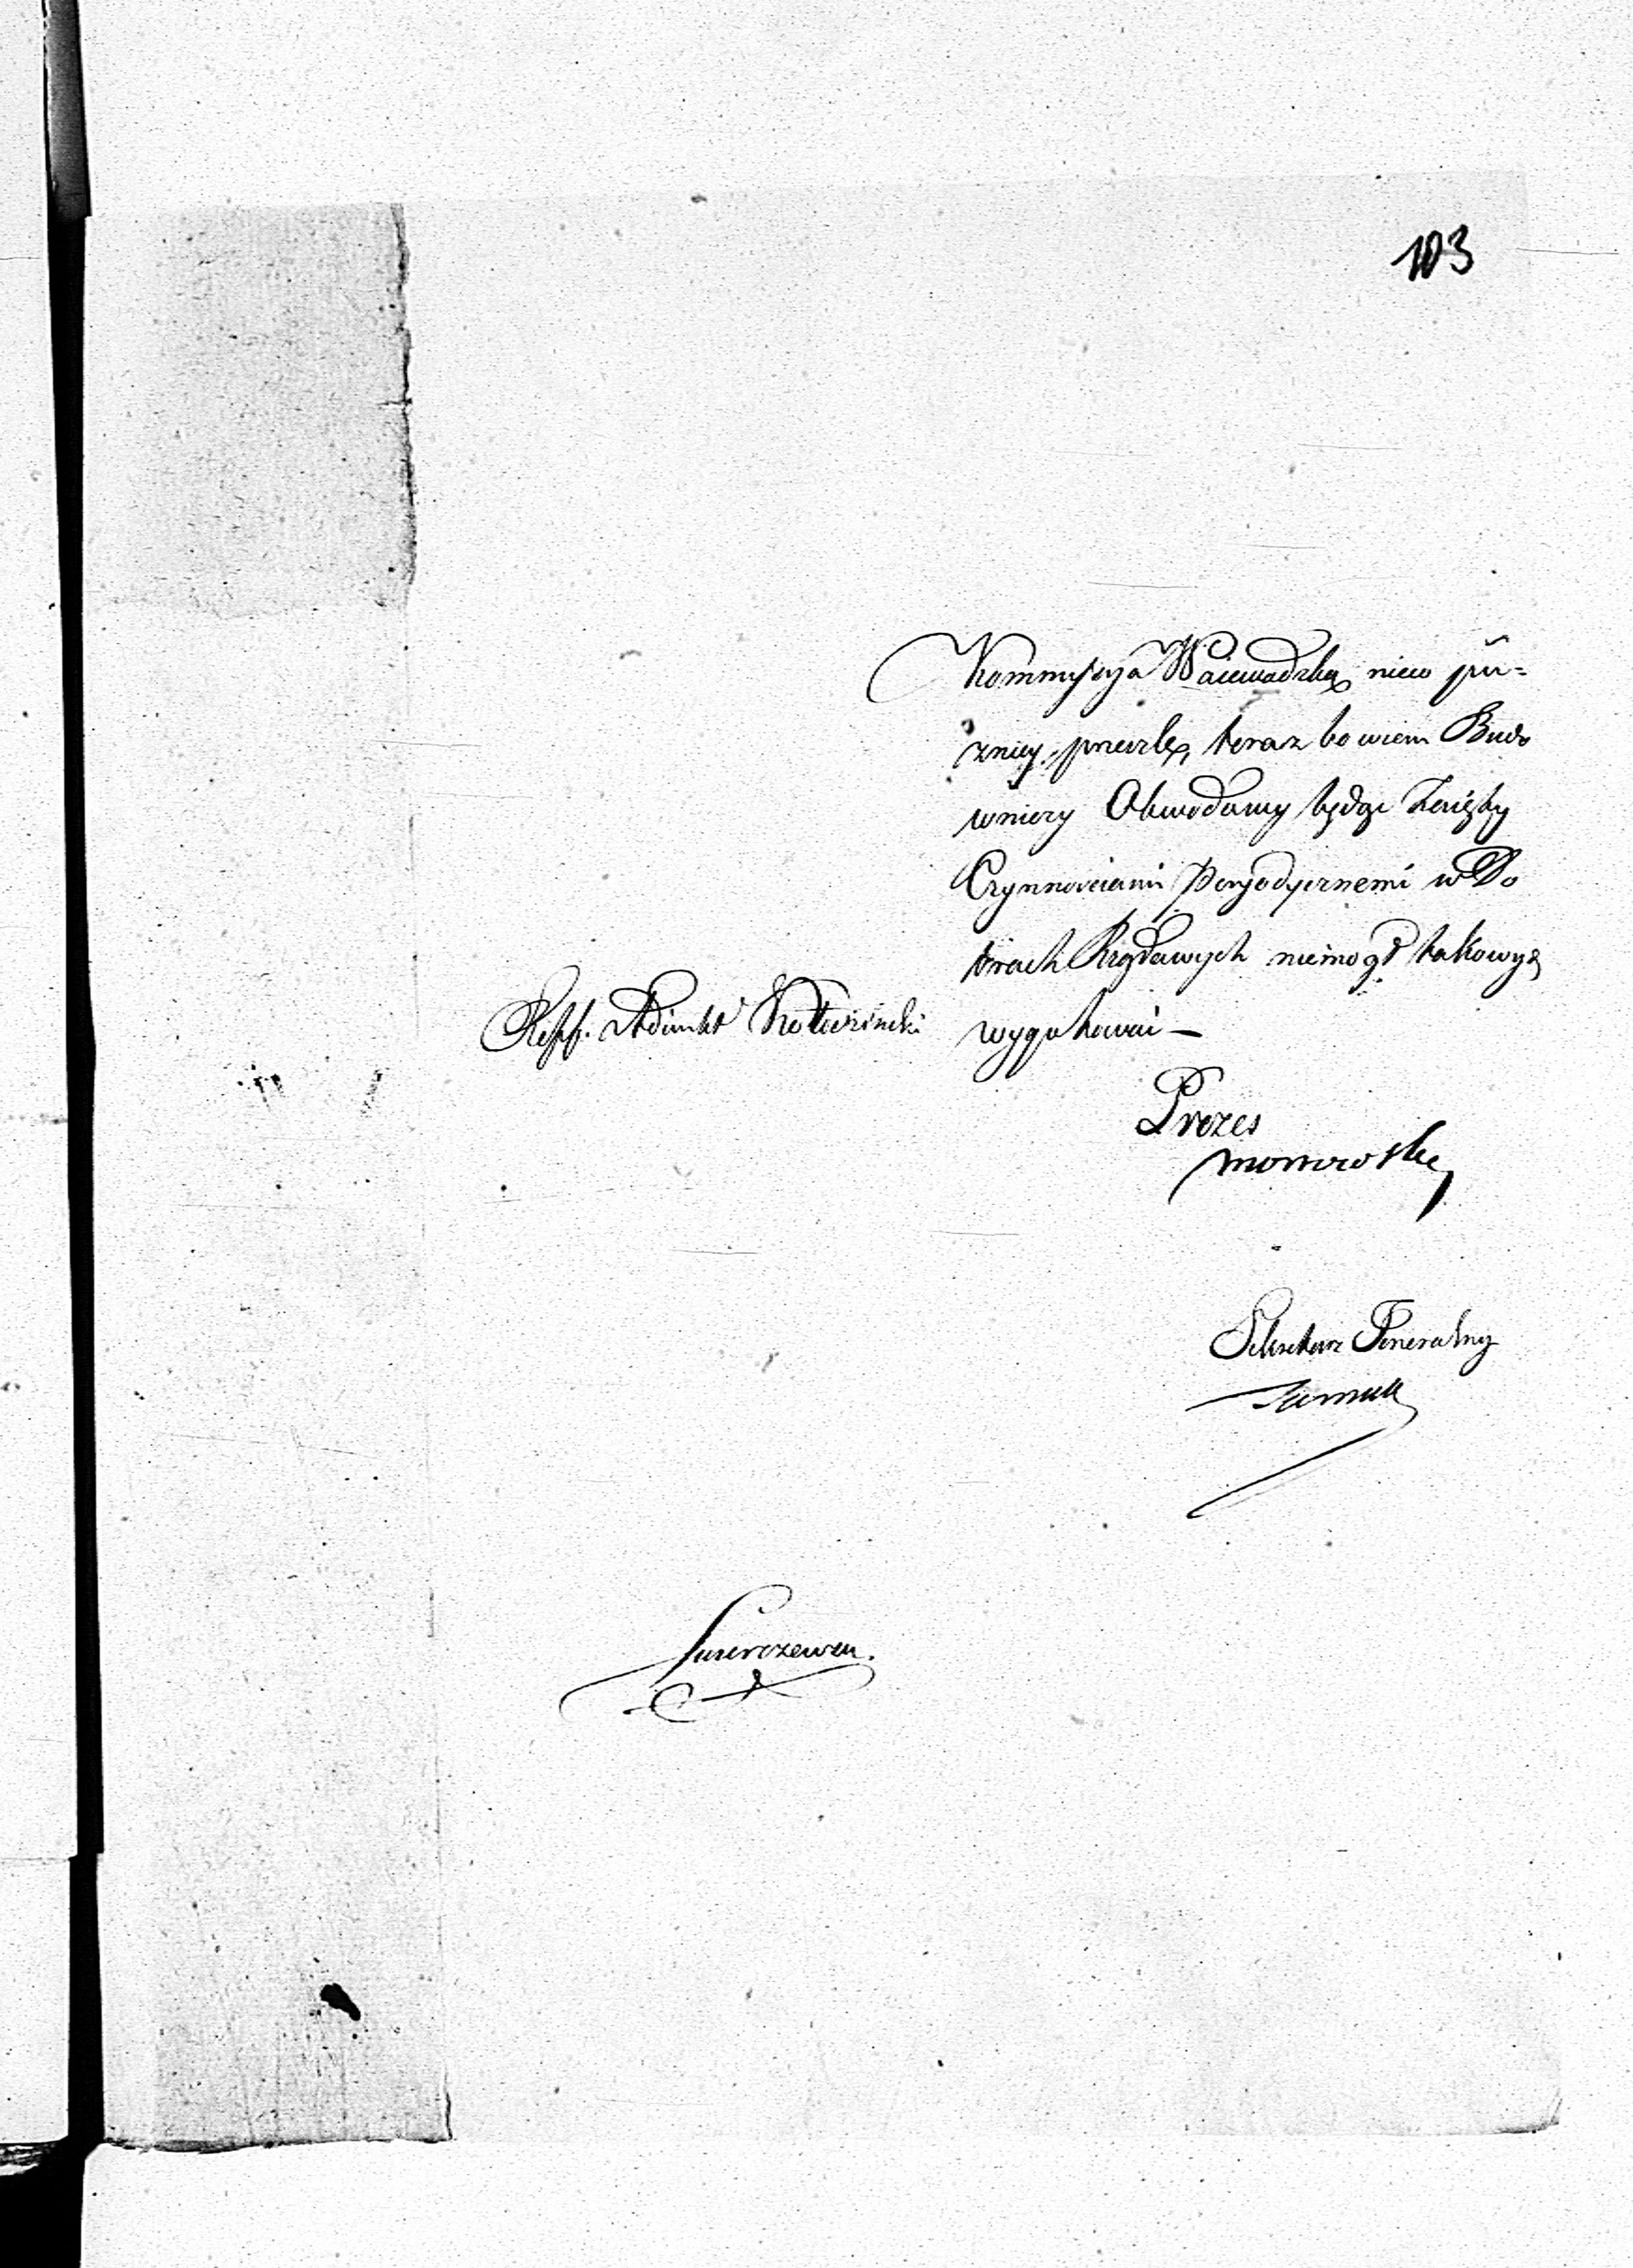 103
Kommyssya Woiewodzka nieco pu=
zniey przeszle, teraz bowiem Budo
wniczy Obwodowy będąc zaięty
Czynnościami peryodycznemi w Do
brach Rządowych niemogł takowych
Reff. Adiunkt
wygotować —
Prezes
Sekretarz Generalny